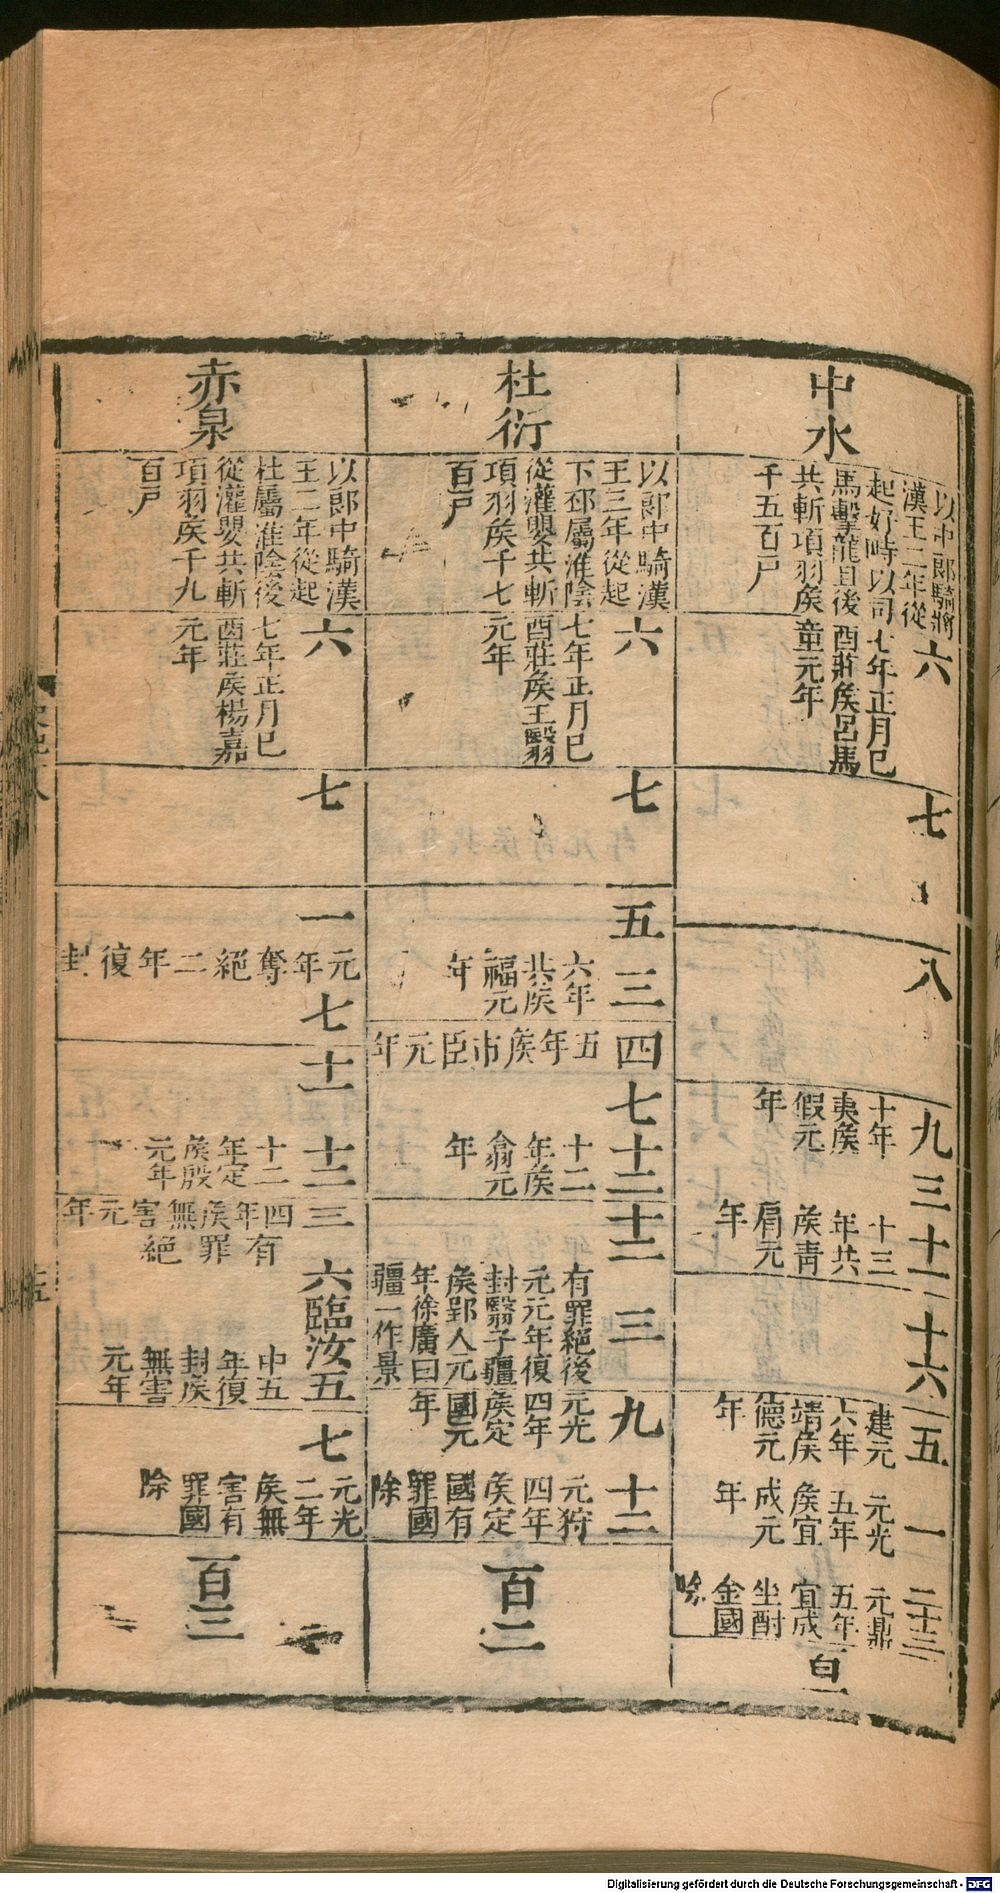 中水
以中郎騎將
漢王二年從
起好畤以司
馬擊龍且後
共斬項羽矦
千五百戶
六
七年正月巳
酉莊矦呂馬
童元年
七
八
九
十年
夷矦
假元
年
三
十三
年共
矦青
肩元
年
十一
十六
建元
六年
靖矦
德元
年
五
元光
五年
矦宜
成元
年
一
元鼎
五年
宜成
坐酎
金國
除
二十三
百一
杜衍
以郎中騎漢
王三年從起
下邳屬淮陰
從灌嬰共斬
項羽矦千七
百戶
六
七年正月巳
酉莊矦王翳
元年
七
五
三
六年
共矦
福元
年
四
五年矦市臣元年
七
十二
十二
年矦
翕元
年
十二
有罪絕後
元元年復
封翳子疆
矦郢人元
年徐廣曰
疆一作景
三
九
元光
四年
矦定
國元
年
十二
元狩
四年
矦定
國有
罪國
除
百二
赤泉
以郎中騎漢
王二年從起
杜屬淮陰後
從灌嬰共斬
項羽矦千九
百戶
六
七年正月巳
酉莊矦楊嘉
元年
七
一
元年奪絕二年復封
七
十一
十二
十二
年定
矦殷
元年
三
四年矦無害元年
有罪絕
六
臨汝
五
中五
年復
封矦
無害
元年
七
元光
二年
矦無
害有
罪國
除
百三
十五
Digitalisierung gefördert durch die Deutsche Forschungsgemeinschaft - DFG